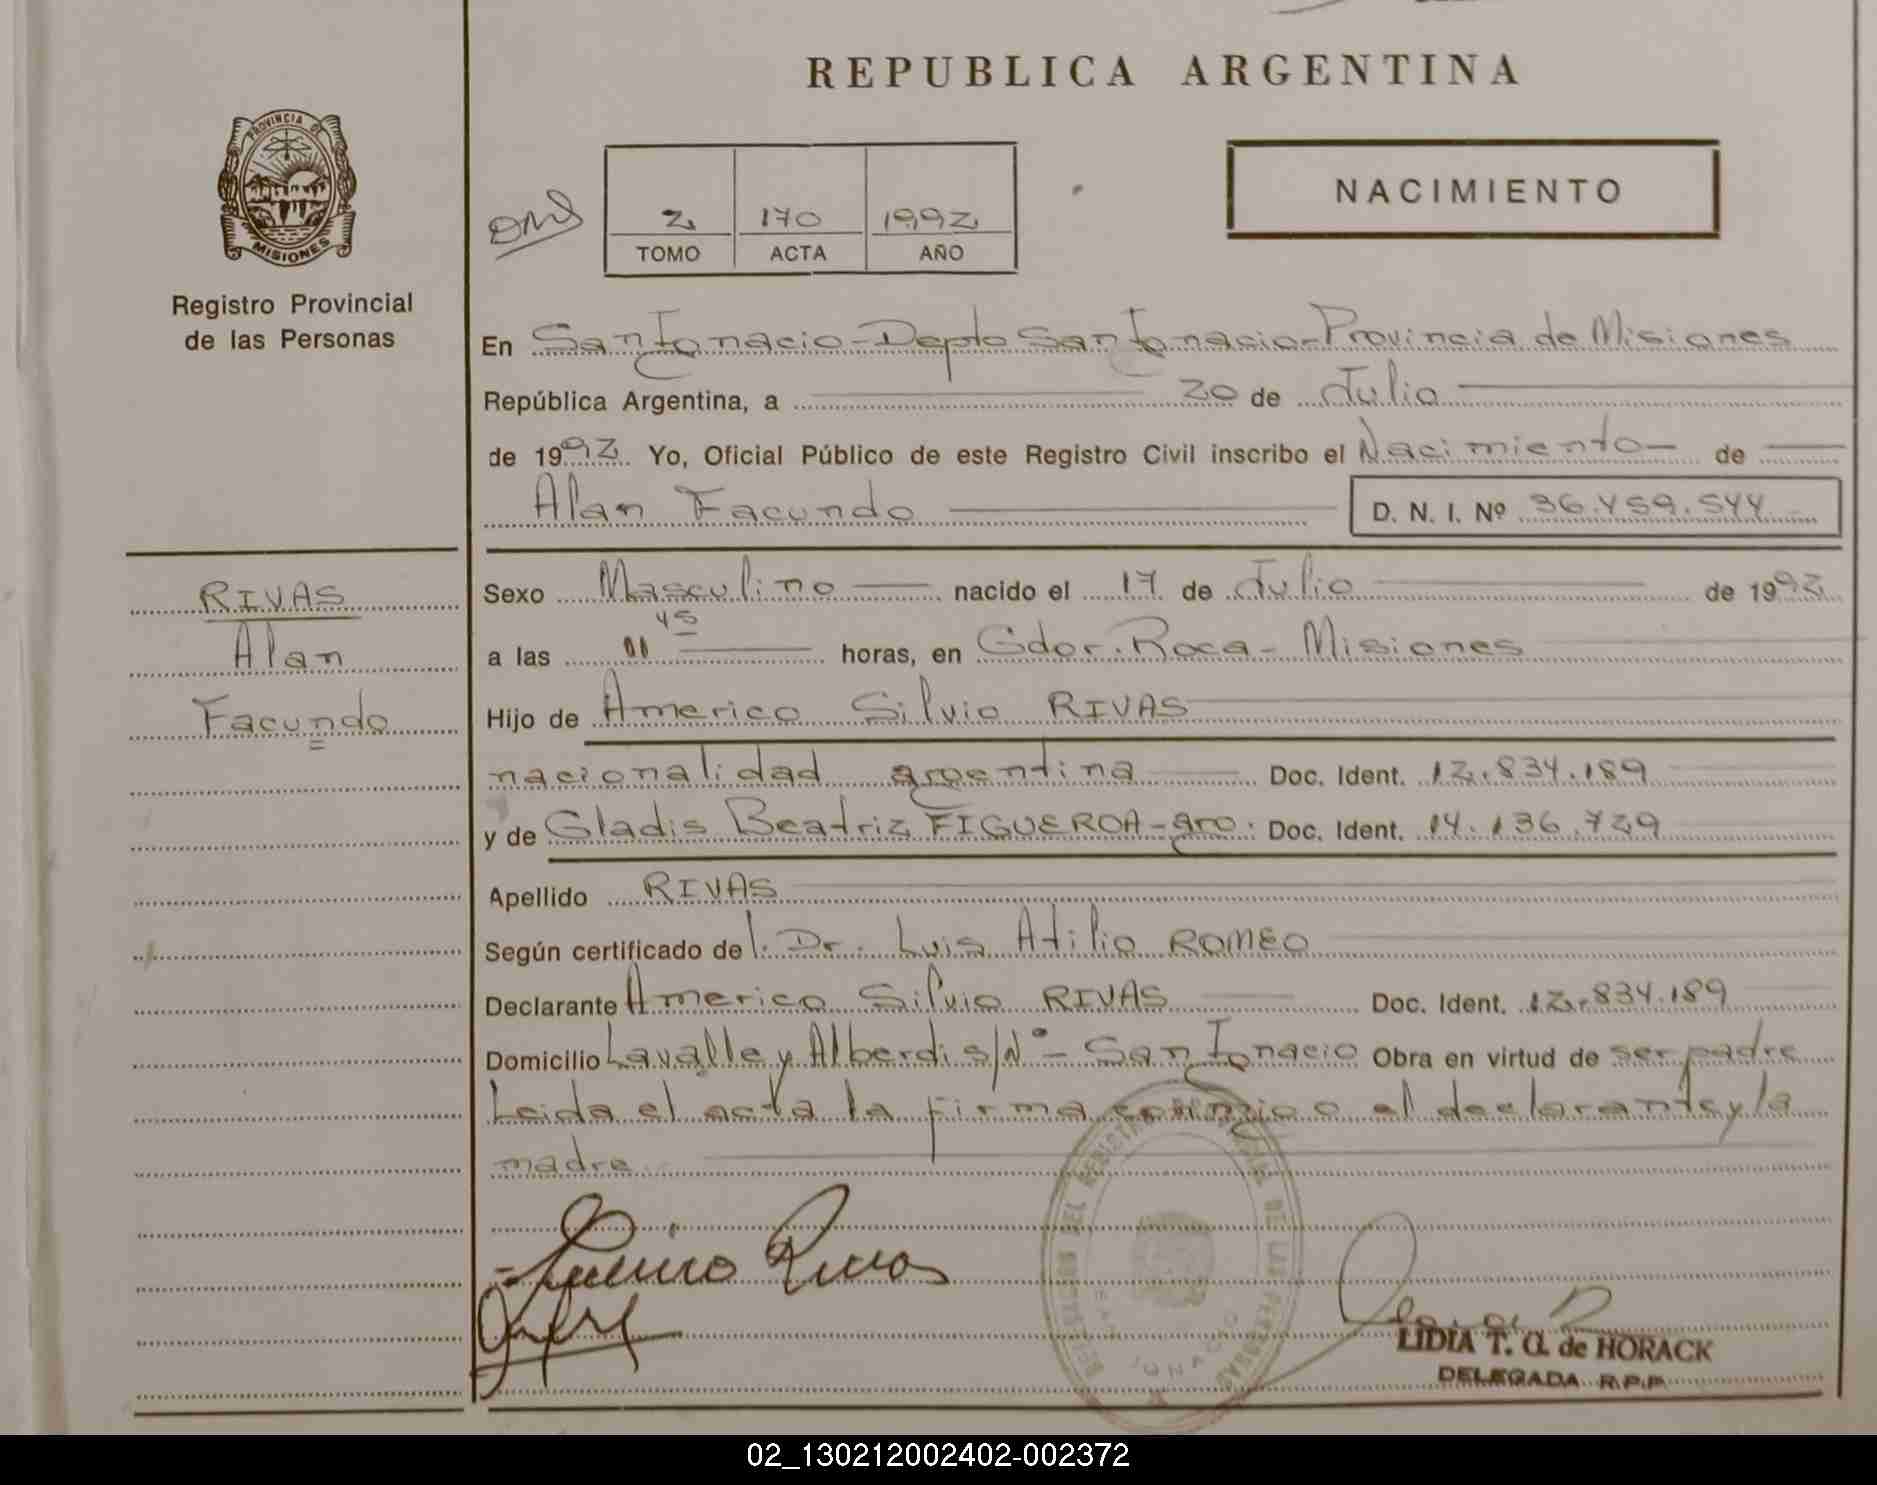 REPUBLICA ARGENTINA
PROVINCIA DE MISIONES
Registro Provincial
de las Personas
NACIMIENTO
2 170 1992
TOMO ACTA AÑO
En San Ignacio - Depto San Ignacio - Provincia de Misiones
República Argentina, a 20 de Julio
de 1992 Yo, Oficial Público de este Registro Civil inscribo el Nacimiento de
Alan Facundo D. N. I. Nº 36.459.544
RIVAS
Alan
Facundo
Sexo Masculino nacido el 17 de Julio de 1992
a las 11 45 horas, en Gdor. Roca - Misiones
Hijo de Americo Silvio RIVAS
nacionalidad argentina Doc. Ident. 12.834.189
y de Gladis Beatriz FIGUEROA - gro. Doc. Ident. 14.136.729
Apellido RIVAS
Según certificado del Dr. Luis Atilio ROMEO
Declarante Americo Silvio RIVAS Doc. Ident. 12.834.189
Domicilio Lavalle y Alberdi s/Nº - San Ignacio Obra en virtud de ser padre
Leida el acta la firma conmigo el declarante y la
madre
Rivas
LIDIA T. G. de HORACK
DELEGADA R.P.P.
02_130212002402-002372